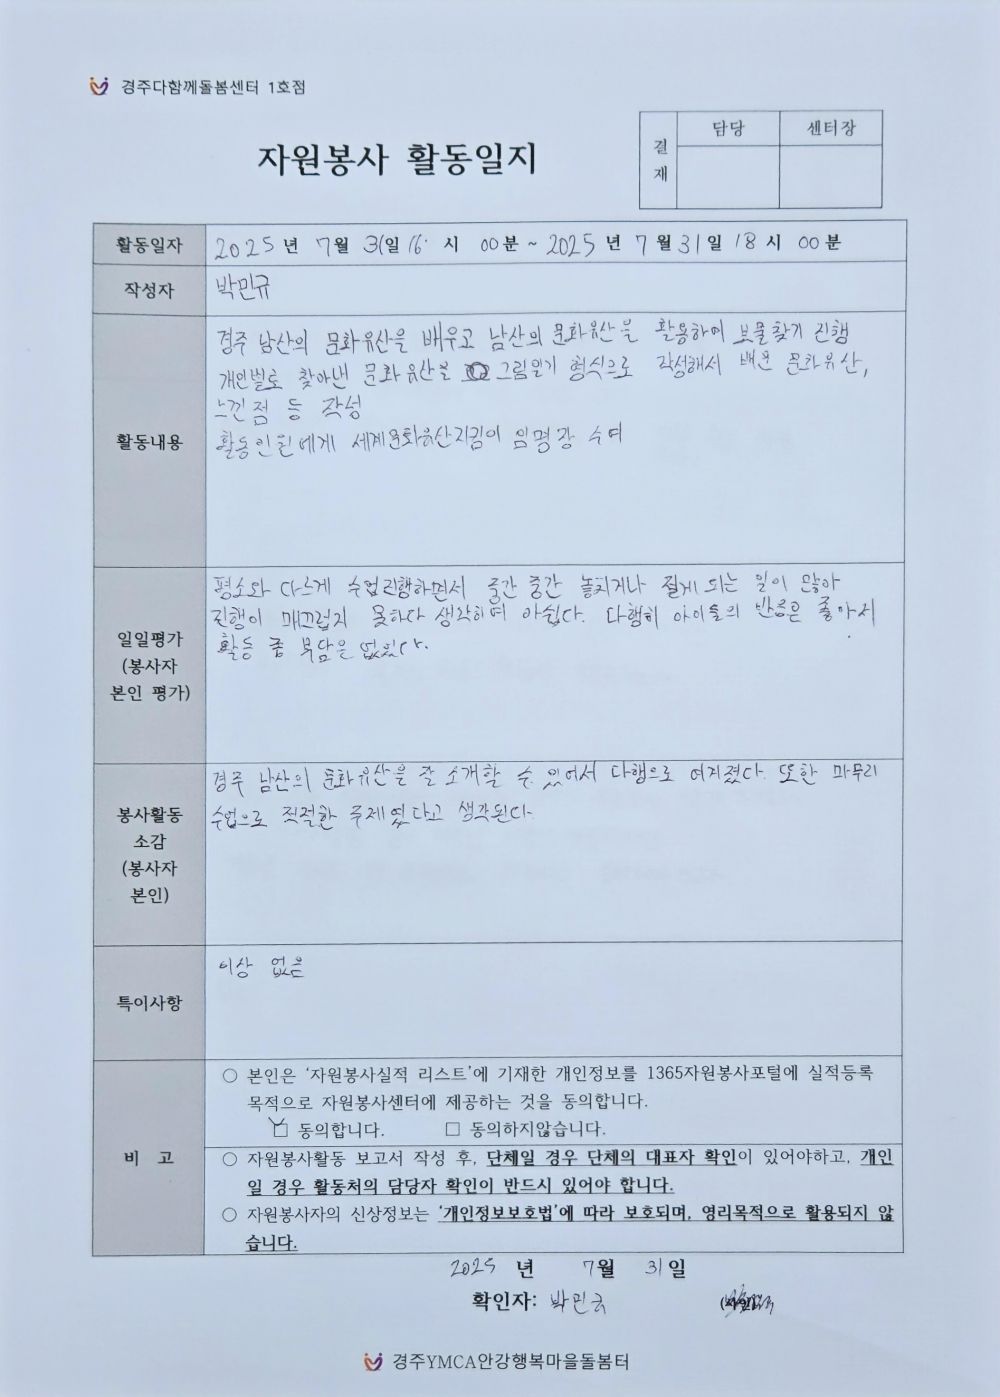 경주다함께돌봄센터 1호점
자원봉사 활동일지
결재 담당 센터장
활동일자 2025년 7월 31일 16시 00분 ~ 2025년 7월 31일 18시 00분
작성자 박민규
활동내용
경주 남산의 문화유산을 배우고 남산의 문화유산을 활용하여 보물찾기 진행
개인별로 찾아낸 문화유산을 그림일기 형식으로 작성해서 배운 문화유산,
느낀점 등 작성
활동인원에게 세계문화유산지킴이 임명장 수여
일일평가
(봉사자
본인 평가)
평소와 다르게 수업진행하면서 중간 중간 놓치거나 절게 되는 일이 많아
진행이 매끄럽지 못하다 생각하며 아쉽다. 다행히 아이들의 반응은 좋아서
활동 중 부담은 없었다.
봉사활동
소감
(봉사자
본인)
경주 남산의 문화유산을 잘 소개할 수 있어서 다행으로 여겨졌다. 또한 마무리
수업으로 적절한 주제였다고 생각된다.
특이사항
이상 없음
비 고
○ 본인은 '자원봉사실적 리스트'에 기재한 개인정보를 1365자원봉사포털에 실적등록
목적으로 자원봉사센터에 제공하는 것을 동의합니다.
☑ 동의합니다. □ 동의하지않습니다.
○ 자원봉사활동 보고서 작성 후, 단체일 경우 단체의 대표자 확인이 있어야하고, 개인
일 경우 활동처의 담당자 확인이 반드시 있어야 합니다.
○ 자원봉사자의 신상정보는 '개인정보보호법'에 따라 보호되며, 영리목적으로 활용되지 않
습니다.
2025 년 7월 31일
확인자: 박민규
경주YMCA안강행복마을돌봄터